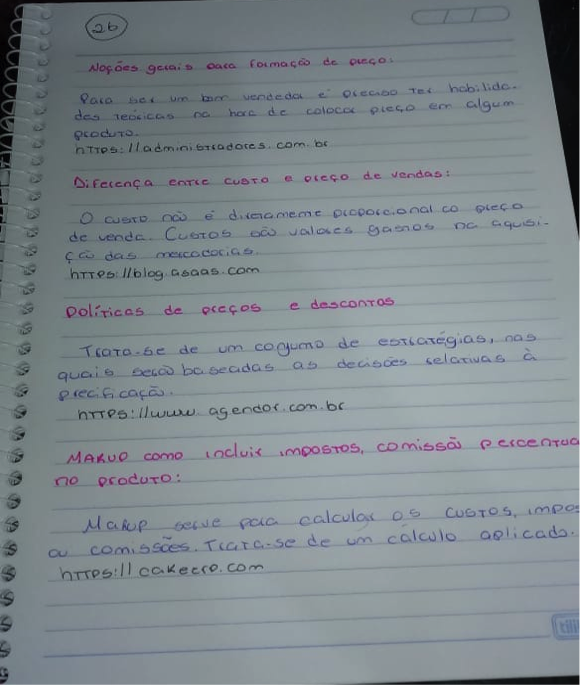 26
Noções gerais para formação de preço:
Para ser um bom vendedor é preciso ter habilida-
des teóricas na hora de colocar preço em algum
produto.
https://administradores.com.br
Diferença entre custo e preço de vendas:
O custo não é diretamente proporcional ao preço
de venda. Custos são valores gastos na aquisi-
ção das mercadorias.
https://blog.asaas.com
Políticas de preços e descontos
Trata-se de um conjunto de estratégias, nas
quais serão baseadas as decisões relativas à
precificação.
https://www.agendor.com.br
MAKUP como incluir impostos, comissão percentua
no produto:
Makup serve para calcular os custos, impos
ou comissões. Trata-se de um cálculo aplicado.
https://cakeerp.com
tili